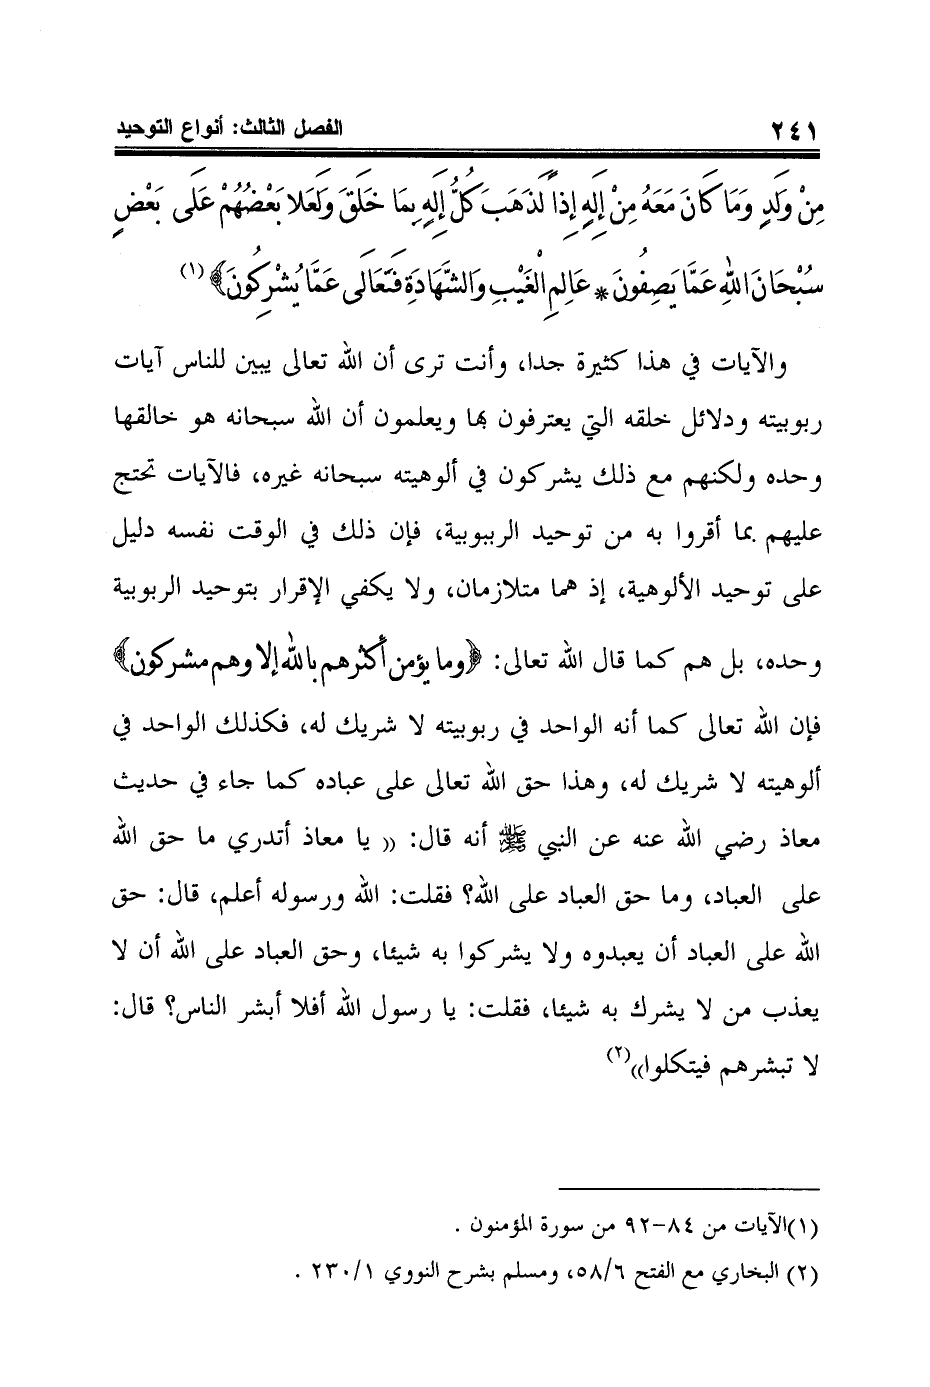 ٢٤١ الفصل الثالث: أنواع التوحيد
مِنْ وَلَدٍ وَمَا كَانَ مَعَهُ مِنْ إِلَهٍ إِذاً لَذَهَبَ كُلُّ إِلَهٍ بِمَا خَلَقَ وَلَعَلا بَعْضُهُمْ عَلَى بَعْضٍ
سُبْحَانَ اللهِ عَمَّا يَصِفُونَ * عَالِمِ الْغَيْبِ وَالشَّهَادَةِ فَتَعَالَى عَمَّا يُشْرِكُونَ﴾(١)
والآيات في هذا كثيرة جدا، وأنت ترى أن الله تعالى يبين للناس آيات
ربوبيته ودلائل خلقه التي يعترفون بها ويعلمون أن الله سبحانه هو خالقها
وحده ولكنهم مع ذلك يشركون في ألوهيته سبحانه غيره، فالآيات تحتج
عليهم بما أقروا به من توحيد الرببوبية، فإن ذلك في الوقت نفسه دليل
على توحيد الألوهية، إذ هما متلازمان، ولا يكفي الإقرار بتوحيد الربوبية
وحده، بل هم كما قال الله تعالى: ﴿وما يؤمن أكثرهم بالله إلا وهم مشركون﴾
فإن الله تعالى كما أنه الواحد في ربوبيته لا شريك له، فكذلك الواحد في
ألوهيته لا شريك له، وهذا حق الله تعالى على عباده كما جاء في حديث
معاذ رضي الله عنه عن النبي ﷺ أنه قال: (( يا معاذ أتدري ما حق الله
على العباد، وما حق العباد على الله؟ فقلت: الله ورسوله أعلم، قال: حق
الله على العباد أن يعبدوه ولا يشركوا به شيئا، وحق العباد على الله أن لا
يعذب من لا يشرك به شيئا، فقلت: يا رسول الله أفلا أبشر الناس؟ قال:
لا تبشرهم فيتكلوا))(٢)
(١)الآيات من ٨٤-٩٢ من سورة المؤمنون .
(٢) البخاري مع الفتح ٥٨/٦، ومسلم بشرح النووي ٢٣٠/١ .